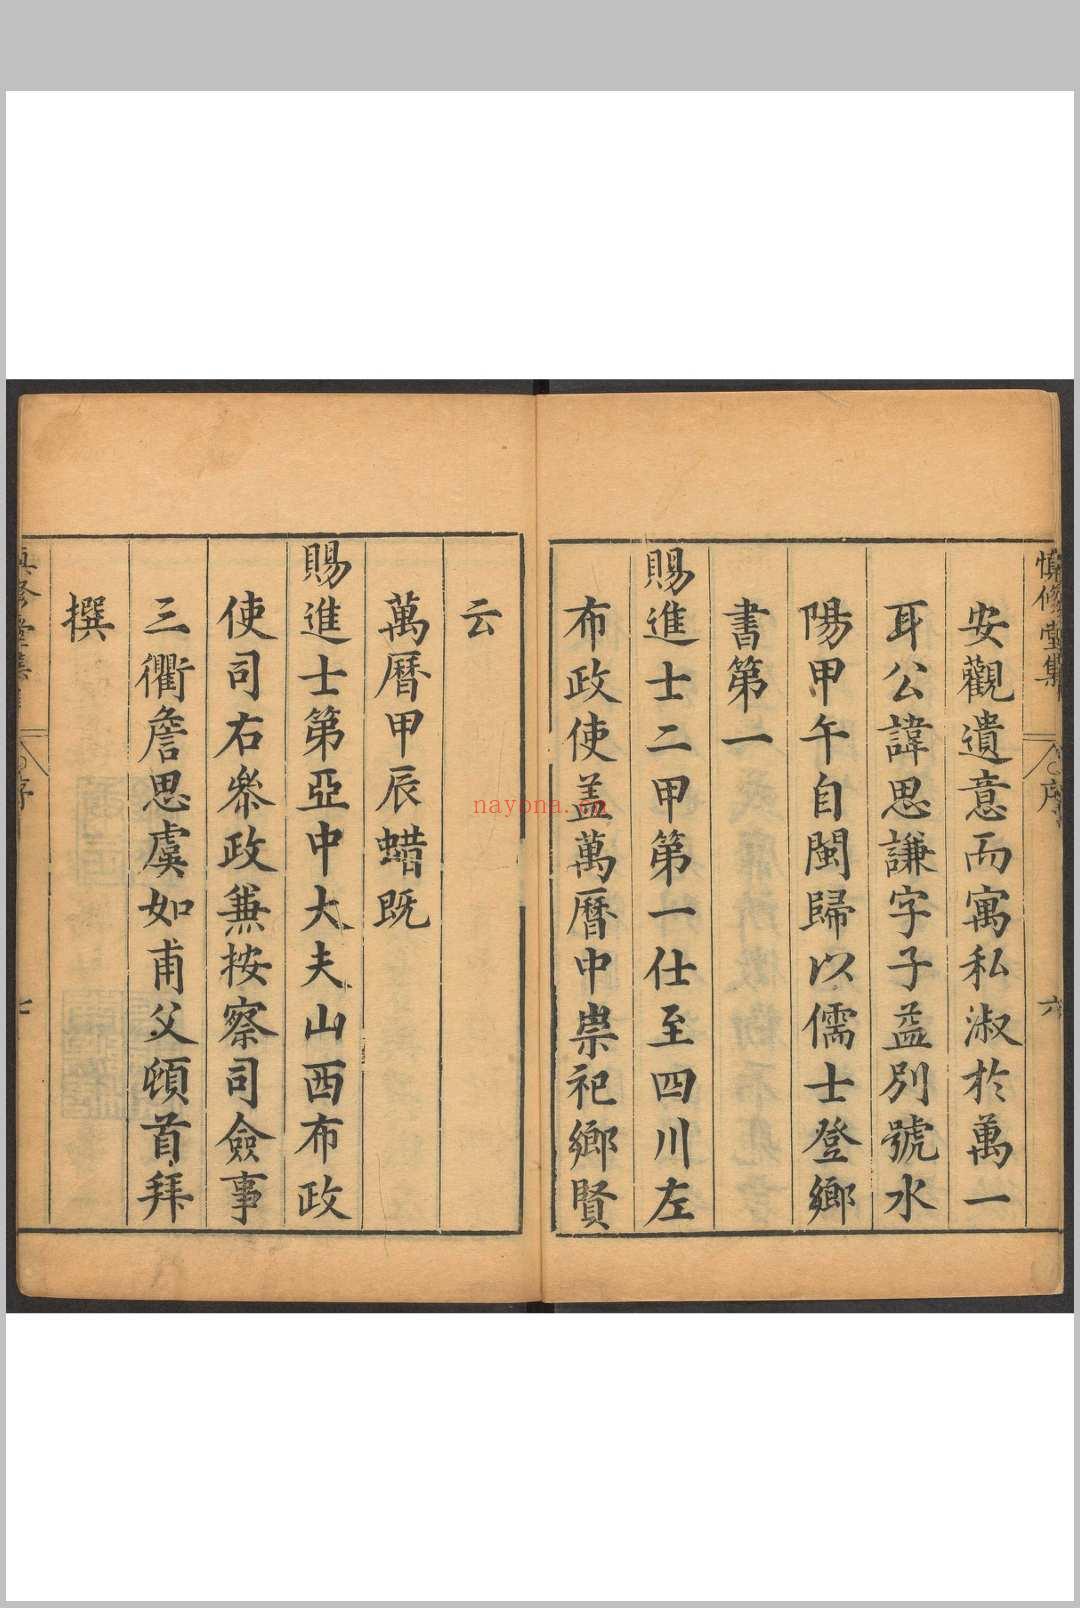 慎修堂集
序
六
安觀遺意而寓私淑於萬一
耳公諱思謙字子益別號水
陽甲午自閩歸以儒士登鄉
書第一
賜進士二甲第一仕至四川左
布政使盖萬曆中崇祀鄉賢
云
萬曆甲辰蜡既
賜進士第亞中大夫山西布政
使司右叅政兼按察司僉事
三衢詹思虞如甫父頓首拜
撰
序
七
nayona.cn